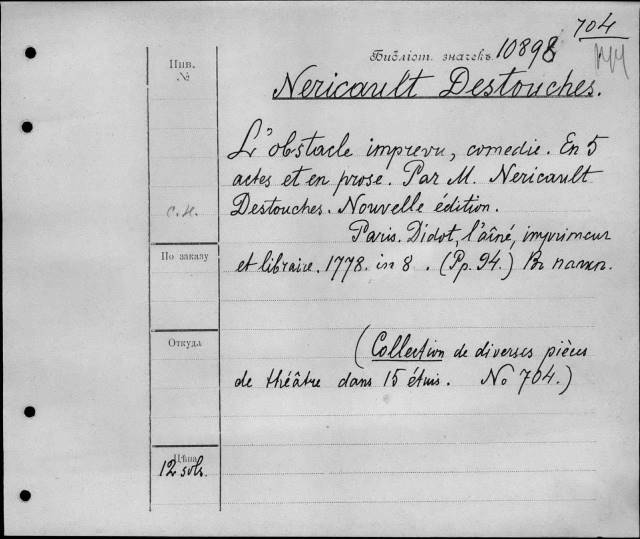 704
Инв.
№
Бібліот. значекъ 10898
Nericault Destouches.
L'obstacle imprevu, comedie. En 5
actes et en prose. Par M. Nericault
Destouches. Nouvelle édition.
с.н.
Paris. Didot, l'aîné, imprimeur
По заказу
et libraire. 1778. in 8 . (Pp. 94.) Въ папкѣ.
Откуда
(Collection de diverses pièces
de théâtre dans 15 étuis. No 704.)
Цѣна
12 sols.